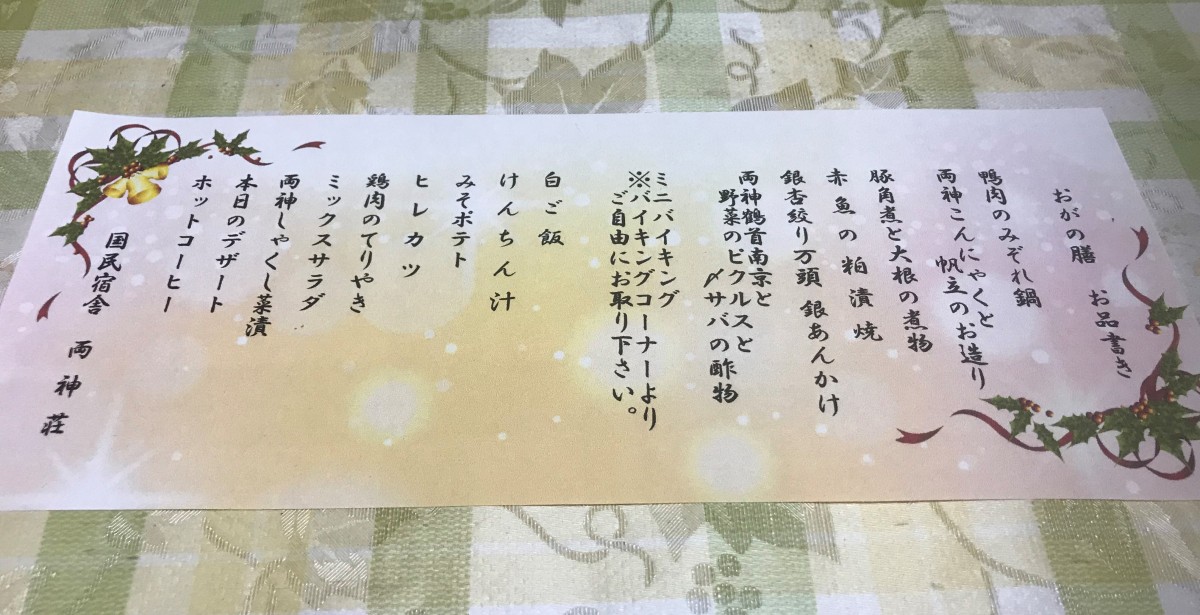 おがの膳 お品書き
鴨肉のみぞれ鍋
両神こんにゃくと
帆立のお造り
豚角煮と大根の煮物
赤魚の粕漬焼
銀杏絞り万頭 銀あんかけ
両神鶴首南京と
野菜のピクルスと
〆サバの酢物
ミニバイキング
※バイキングコーナーより
ご自由にお取り下さい。
白ご飯
けんちん汁
みそポテト
ヒレカツ
鶏肉のてりやき
ミックスサラダ
両神しゃくし菜漬
本日のデザート
ホットコーヒー
国民宿舎 両神荘